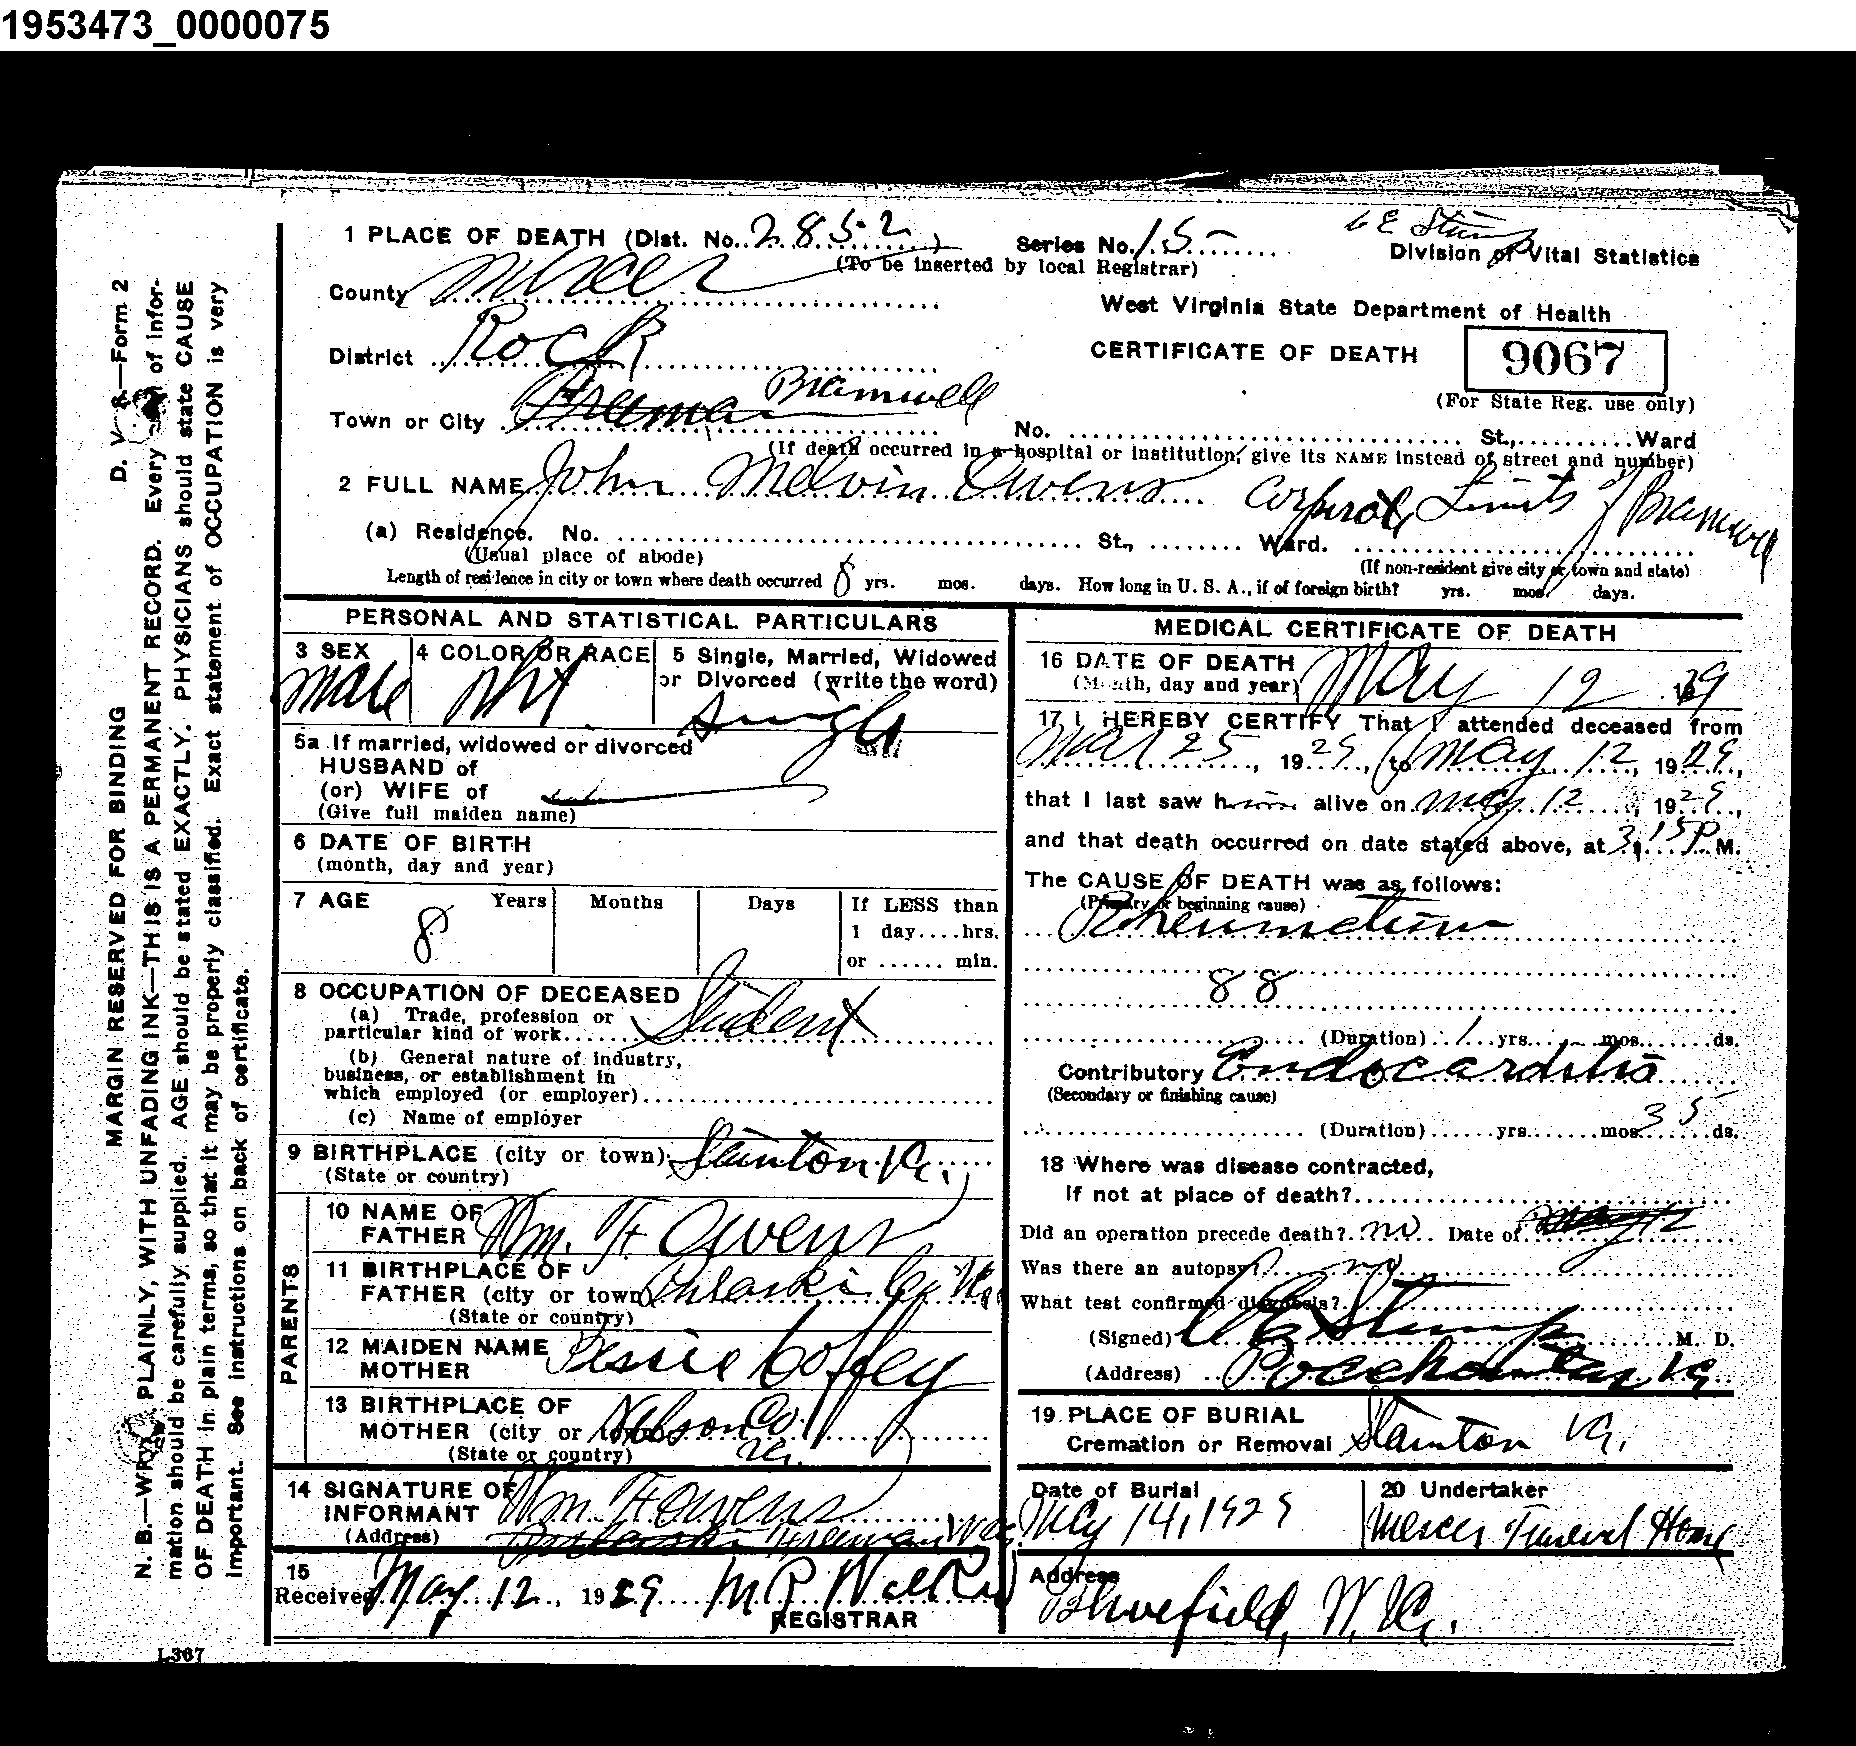 1953473_0000075
1 PLACE OF DEATH (Dist. No. 2852)
Series No. 15-
(To be inserted by local Registrar)
Division of Vital Statistics
County Mercer
West Virginia State Department of Health
District Rock
CERTIFICATE OF DEATH
9067
(For State Reg. use only)
Town or City Freeman Bramwell
No. St., Ward
(If death occurred in a hospital or institution, give its NAME instead of street and number)
2 FULL NAME John Melvin Owens Corporate Limits of Bramwell
(a) Residence. No. St., Ward.
(Usual place of abode)
(If non-resident give city or town and state)
Length of residence in city or town where death occurred 8 yrs. mos. days. How long in U. S. A., if of foreign birth? yrs. mos. days.
PERSONAL AND STATISTICAL PARTICULARS
3 SEX
Male
4 COLOR OR RACE
Wht
5 Single, Married, Widowed
or Divorced (write the word)
Single
5a If married, widowed or divorced
HUSBAND of
(or) WIFE of
(Give full maiden name)
6 DATE OF BIRTH
(month, day and year)
7 AGE Years Months Days
8
If LESS than
1 day....hrs.
or ...... min.
8 OCCUPATION OF DECEASED
(a) Trade, profession or
particular kind of work Student
(b) General nature of industry,
business, or establishment in
which employed (or employer)
(c) Name of employer
9 BIRTHPLACE (city or town) Staunton Va.
(State or country)
PARENTS
10 NAME OF
FATHER Wm. H. Owens
11 BIRTHPLACE OF
FATHER (city or town) Pulaski Co Va.
(State or country)
12 MAIDEN NAME
MOTHER Bessie Coffey
13 BIRTHPLACE OF
MOTHER (city or town) Nelson Co.
(State or country) Va.
14 SIGNATURE OF
INFORMANT Wm. H. Owens
(Address) Freeman W Va
15
Received May 12, 1929 M R Walker
REGISTRAR
MEDICAL CERTIFICATE OF DEATH
16 DATE OF DEATH
(Month, day and year) May 12 29
17 I HEREBY CERTIFY That I attended deceased from
Mar 25, 1929, to May 12, 1929,
that I last saw him alive on May 12, 1929,
and that death occurred on date stated above, at 3:15 P. M.
The CAUSE OF DEATH was as follows:
(Primary or beginning cause)
Rheumatism
88
(Duration) 1 yrs. mos. ds.
Contributory Endocarditis
(Secondary or finishing cause)
(Duration) yrs. mos. 35 ds.
18 Where was disease contracted,
if not at place of death?
Did an operation precede death? no Date of May 12
Was there an autopsy? no
What test confirmed diagnosis?
(Signed) Stump M. D.
(Address) Pocahontas, Va
19 PLACE OF BURIAL
Cremation or Removal Staunton Va.
Date of Burial
May 14, 1929
20 Undertaker
Mercer Funeral Home
Address
Bluefield, W. Va.
D. V. S.—Form 2
MARGIN RESERVED FOR BINDING
N. B.—WRITE PLAINLY, WITH UNFADING INK—THIS IS A PERMANENT RECORD. Every item of infor-
mation should be carefully supplied. AGE should be stated EXACTLY. PHYSICIANS should state CAUSE
OF DEATH in plain terms, so that it may be properly classified. Exact statement of OCCUPATION is very
important. See instructions on back of certificate.
L367